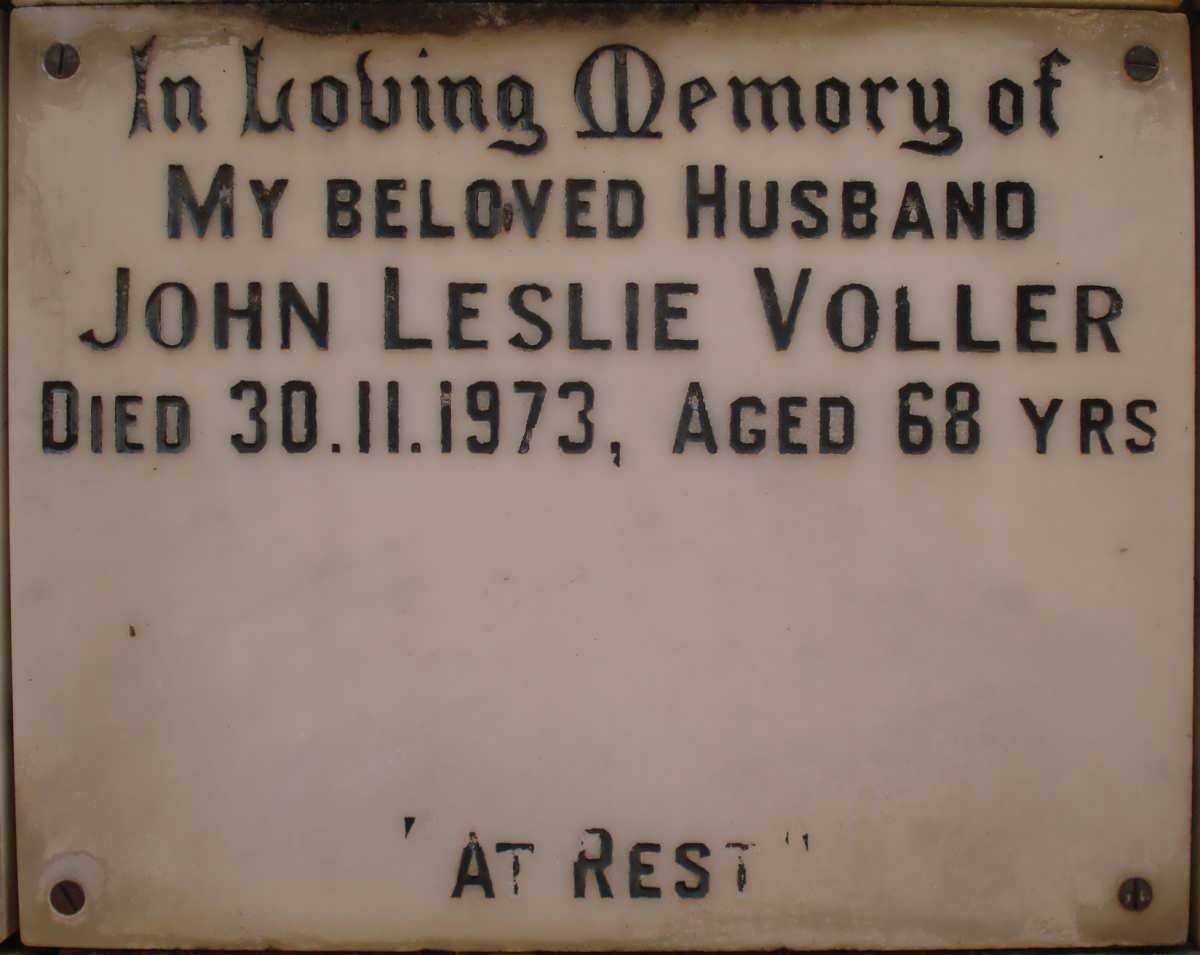 In Loving Memory of
MY BELOVED HUSBAND
JOHN LESLIE VOLLER
DIED 30.11.1973, AGED 68 YRS
"AT REST"